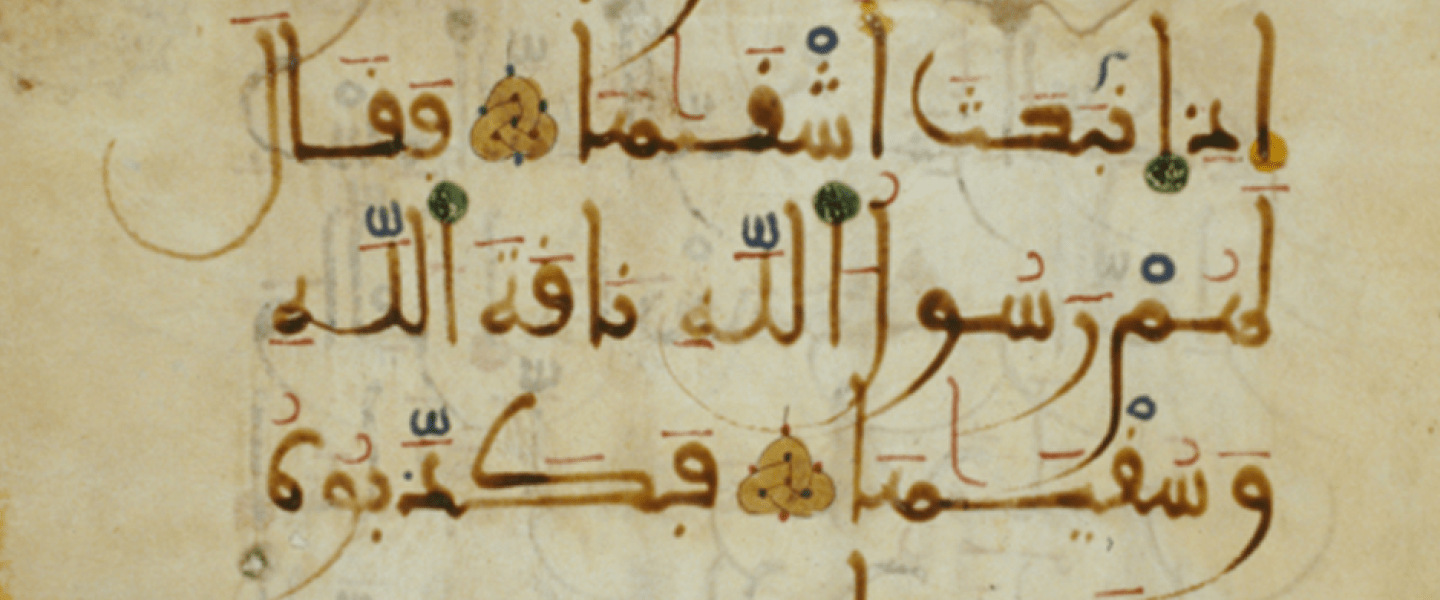 إِذِ اِنۢبَعَثَ أَشْقَيٰهَا فَقَالَ
لَهُمْ رَسُولُ اُللَّهِ نَاقَةَ اَللَّهِ
وَسُقْيَٰهَا فَكَذَّبُوهُ